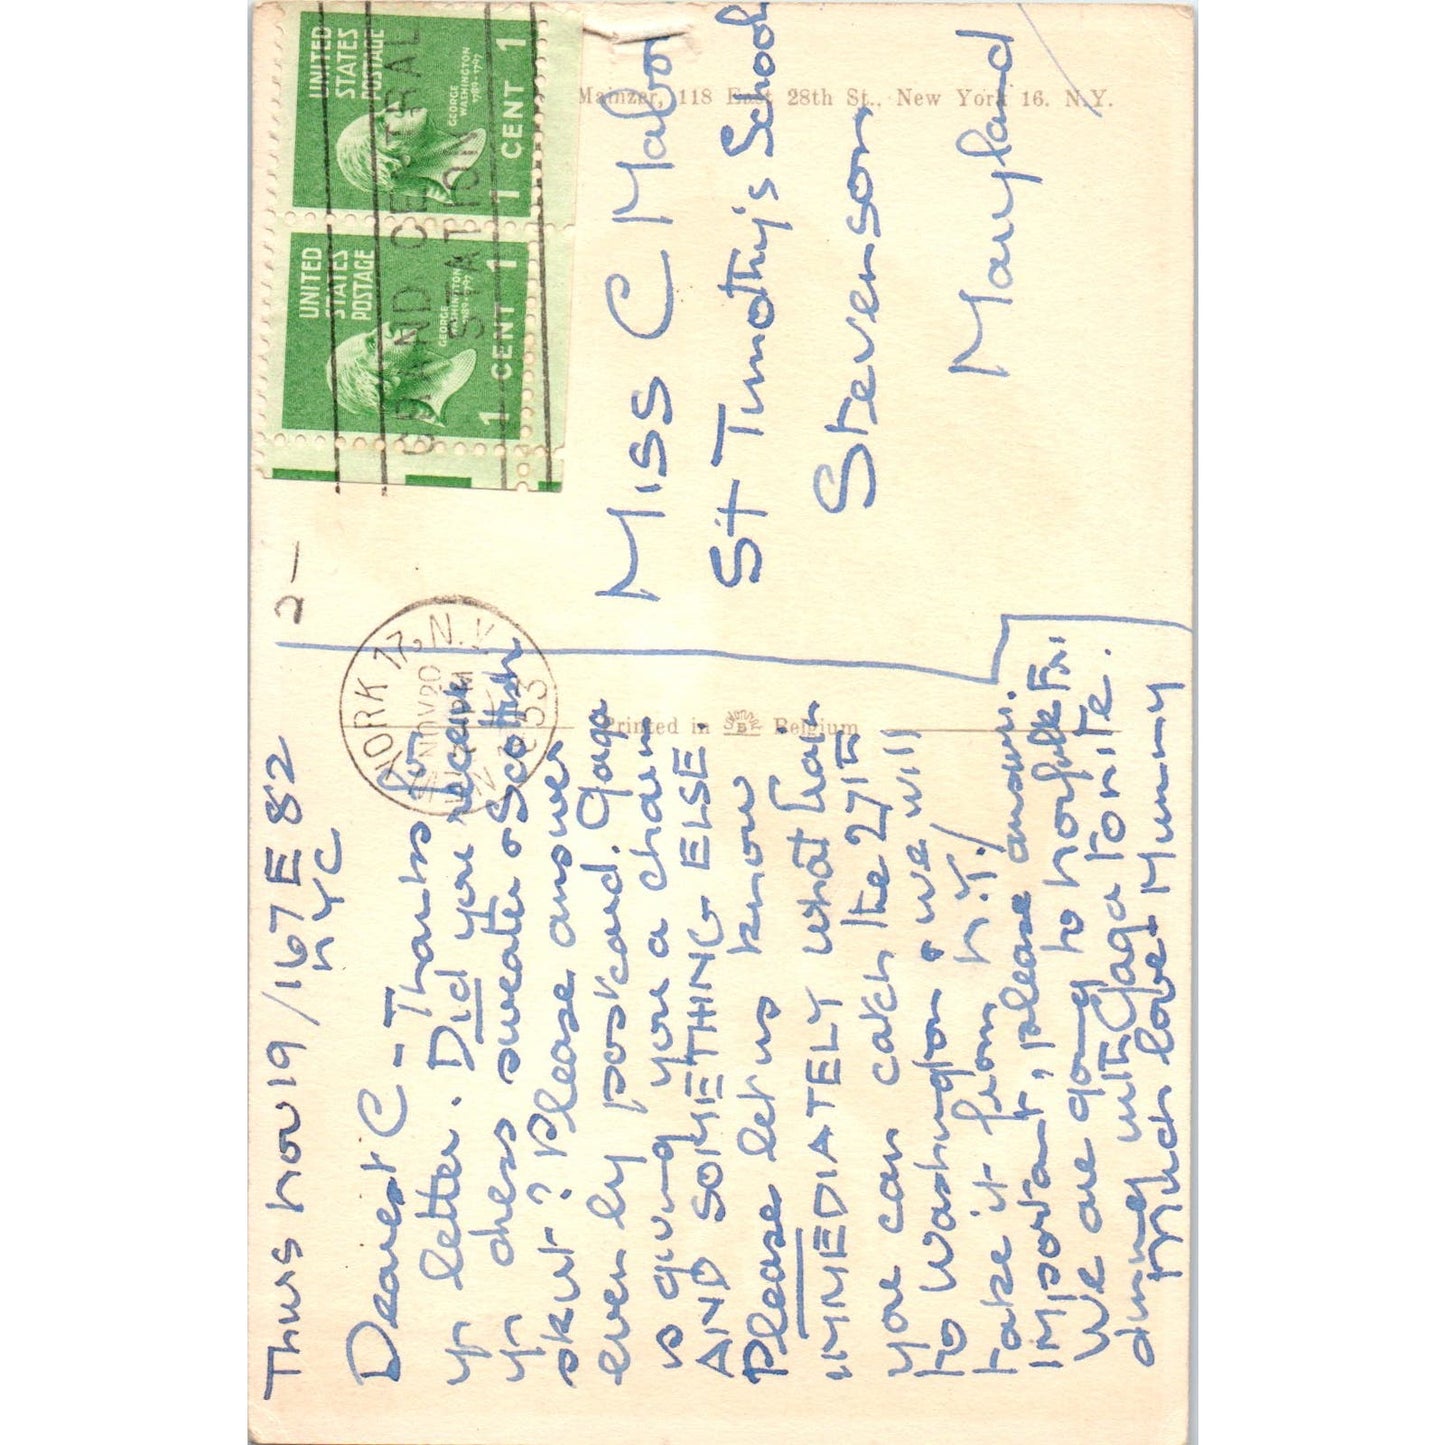 Thurs Nov 19 / 167 E 82
NYC
Dearest C - Thanks for
yr letter. Did you receive
yr dress sweater & Scottish
skirt? Please answer
even by postcard. Gaga
is giving you a charm
AND SOMETHING ELSE.
Please let us know
IMMEDIATELY what train
you can catch the 27th
to Washington & we will
take it from N.Y./
Important, please answer.
We are going to Norfolk Fri.
dining with Gaga tonite.
Much love Mummy
2-
YORK 17, N.Y.
NOV 20
PM
1953
GRAND CENTRAL
STATION
UNITED
STATES
POSTAGE
GEORGE
WASHINGTON
1789-1797
1 CENT 1
UNITED
STATES
POSTAGE
GEORGE
WASHINGTON
1789-1797
1 CENT 1
Miss C Mabon
St Timothy's School
Stevenson
Maryland
Mainzer, 118 East 28th St., New York 16. N.Y.
Printed in Belgium